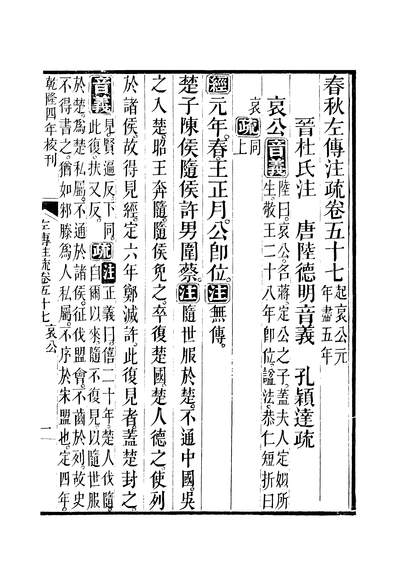 春秋左傳注疏卷五十七起哀公元
年盡五年
晉杜氏注　唐陸德明音義　孔穎達疏
哀公音義陸曰。哀公名蔣定公之子。蓋夫人定姒所
生。敬王二十八年即位。謚法。恭仁短折曰
哀疏同上
經元年。春。王正月。公即位。注無傳。
楚子陳侯隨侯許男圍蔡。注隨世服於楚。不通中國。吳
之入楚。昭王奔隨。隨侯免之。卒復楚國。楚人德之。使列
於諸侯。故得見經。定六年。鄭滅許。此復見者。蓋楚封之。
音義見賢遍反。下同
此復。扶又反。疏注正義曰。僖二十年。楚人伐隨。
自爾以來。隨不復見。以隨世服
於楚。為楚私屬。不通於諸侯。征伐盟會。不齒於列。故史
不得書之。猶如邾滕為人私屬。不序於宋盟也。定四年。
乾隆四年校刊
左傳注疏卷五十七　哀公
一